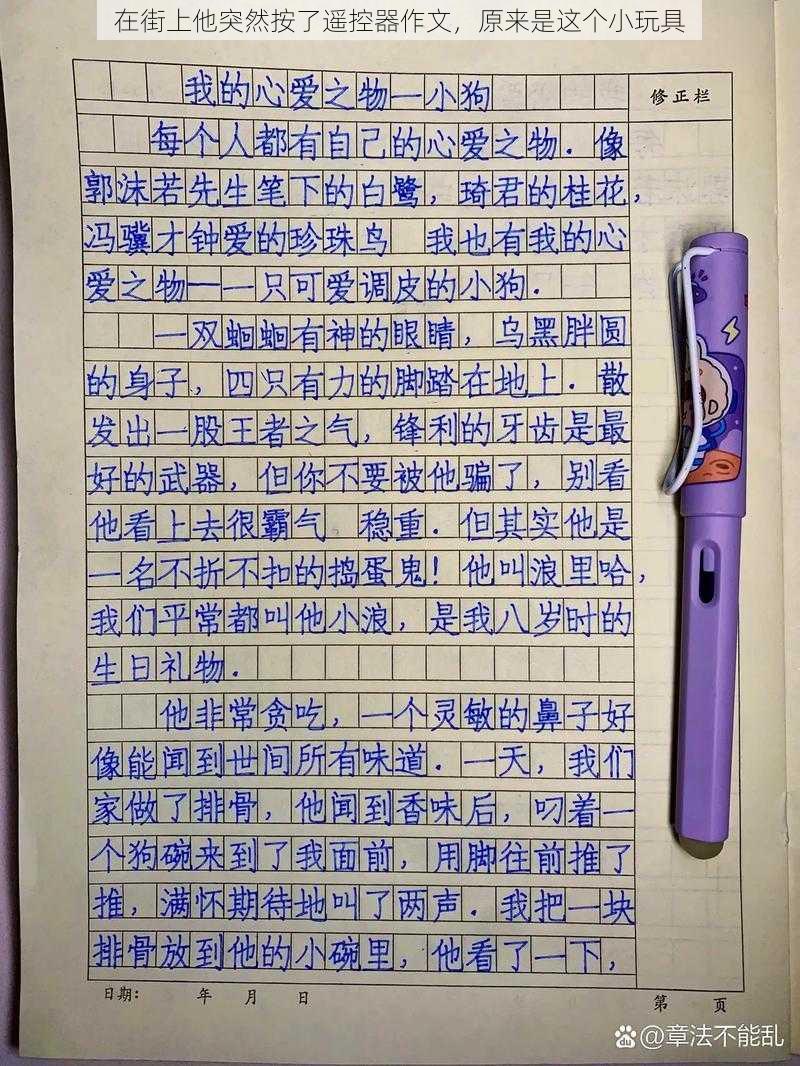 在街上他突然按了遥控器作文，原来是这个小玩具
我的心爱之物一小狗
修正栏
每个人都有自己的心爱之物．像
郭沫若先生笔下的白鹭，琦君的桂花，
冯骥才钟爱的珍珠鸟 我也有我的心
爱之物一一一只可爱调皮的小狗．
一双蛔蛔有神的眼睛，乌黑胖圆
的身子，四只有力的脚踏在地上．散
发出一股王者之气，锋利的牙齿是最
好的武器，但你不要被他骗了，别看
他看上去很霸气 稳重．但其实他是
一名不折不扣的捣蛋鬼！他叫浪里哈，
我们平常都叫他小浪，是我八岁时的
生日礼物．
他非常贪吃，一个灵敏的鼻子好
像能闻到世间所有味道．一天，我们
家做了排骨，他闻到香味后，叼着一
个狗碗来到了我面前，用脚往前推了
推，满怀期待地叫了两声．我把一块
排骨放到他的小碗里，他看了一下，
日期： 年 月 日
第 页
Bai du @章法不能乱